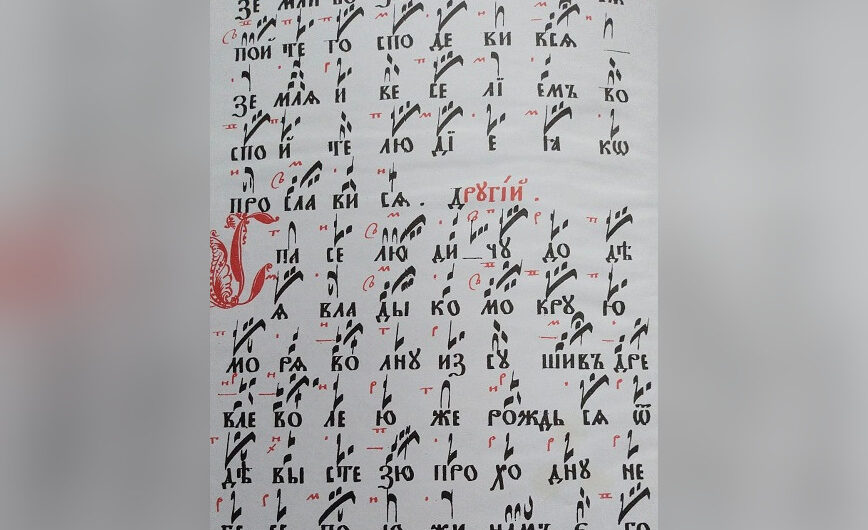 пой те го спо де ви всѧ
зе млѧ и ве се лї емъ во
спой те лю дї е ꙗ кѡ
про сла ви сѧ . дрꙋгі́й .
Спа се лю ди чꙋ до дѣ
ѧ вла ды ко мо крꙋ ю
мо рѧ во лнꙋ из сꙋ шивъ дре
вле во ле ю же рождь сѧ ѿ
дѣ вы сте зю про хо днꙋ не